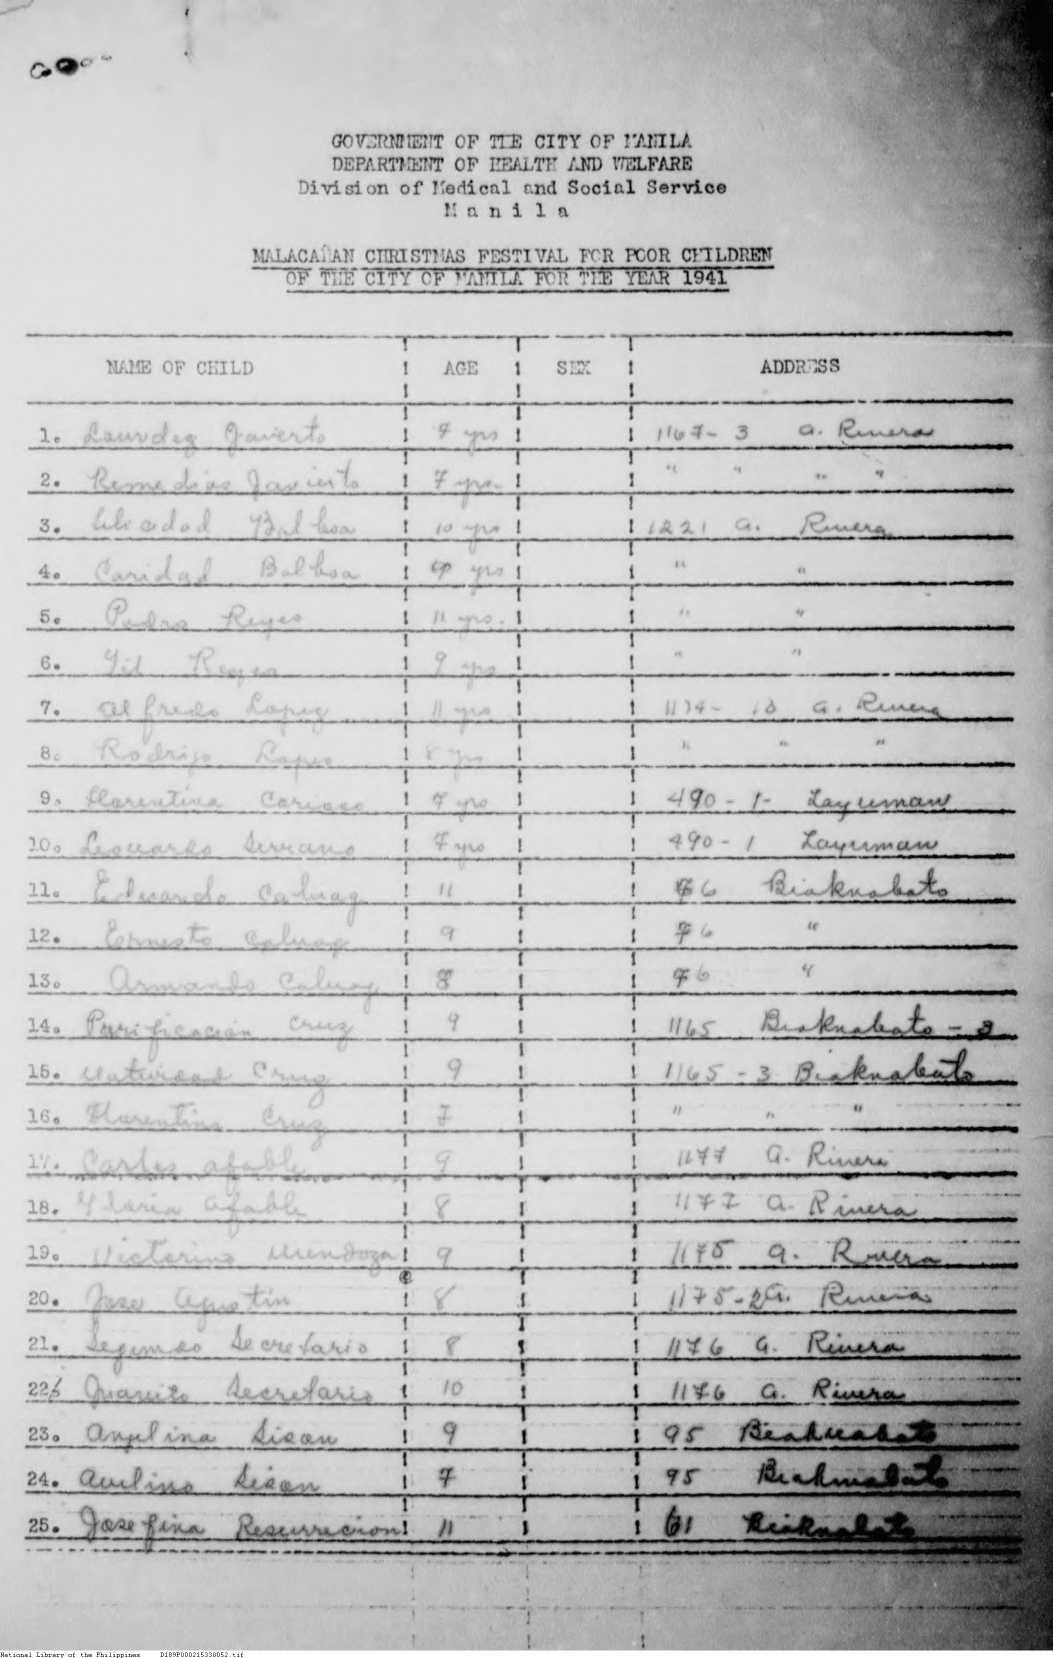 GOVERNMENT OF THE CITY OF MANILA
DEPARTMENT OF HEALTH AND WELFARE
Division of Medical and Social Service
M a n i l a
MALACAÑAN CHRISTMAS FESTIVAL FOR POOR CHILDREN
OF THE CITY OF MANILA FOR THE YEAR 1941
NAME OF CHILD AGE SEX ADDRESS
1. Lourdez Javierto 9 yrs 1167-3 A. Rivera
2. Remedios Javierto 7 yrs. " " " "
3. Balboa 10 yrs 1221 A. Rivera
4. Caridad Balboa 9 yrs " "
5. Pedro Reyes 11 yrs. " "
6. Gil Reyes 9 yrs " "
7. Alfredo Lopez 11 yrs 1174-18 A. Rivera
8. Rodrigo Lopez 8 yrs " " "
9. Florentina Carioso 7 yrs 490-1- Layuman
10. Leonardo Serrano 7 yrs 490-1 Layuman
11. Eduardo Caluag 11 76 Biaknabato
12. Ernesto Caluag 9 76 "
13. Armando Caluag 8 76 "
14. Purificacion Cruz 9 1165 Biaknabato - 3
15. Natividad Cruz 9 1165-3 Biaknabato
16. Florentino Cruz 7 " " "
17. Carlos Afable 9 1177 A. Rivera
18. Gloria Afable 8 1177 A. Rivera
19. Victorino Mendoza 9 1175 A. Rivera
20. Jose Agustin 8 1175-2 A. Rivera
21. Segundo Secretario 8 1176 A. Rivera
22. Juanito Secretario 10 1176 A. Rivera
23. Angelina Sison 9 95 Biaknabato
24. Avelino Sison 7 95 Biaknabato
25. Josefina Resurrecion 11 61 Biaknabato
National Library of the Philippines D189P000215338052.tif